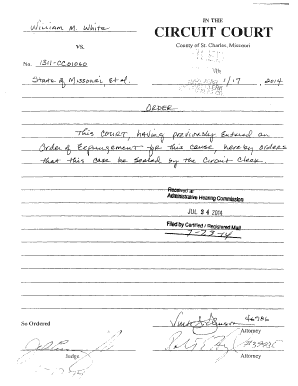 William M. White
IN THE
CIRCUIT COURT
vs.
County of St. Charles, Missouri
No. 1311-CC01060
State of Missouri, et al.
1/17, 2014
ORDER
This COURT, having previously entered an
Order of Expungement for this cause, hereby orders
that this case be sealed by the Circuit Clerk.
Received at
Administrative Hearing Commission
JUL 24 2014
Filed by Certified / Registered Mail
7-23-14
So Ordered
46986
Attorney
Judge
Attorney